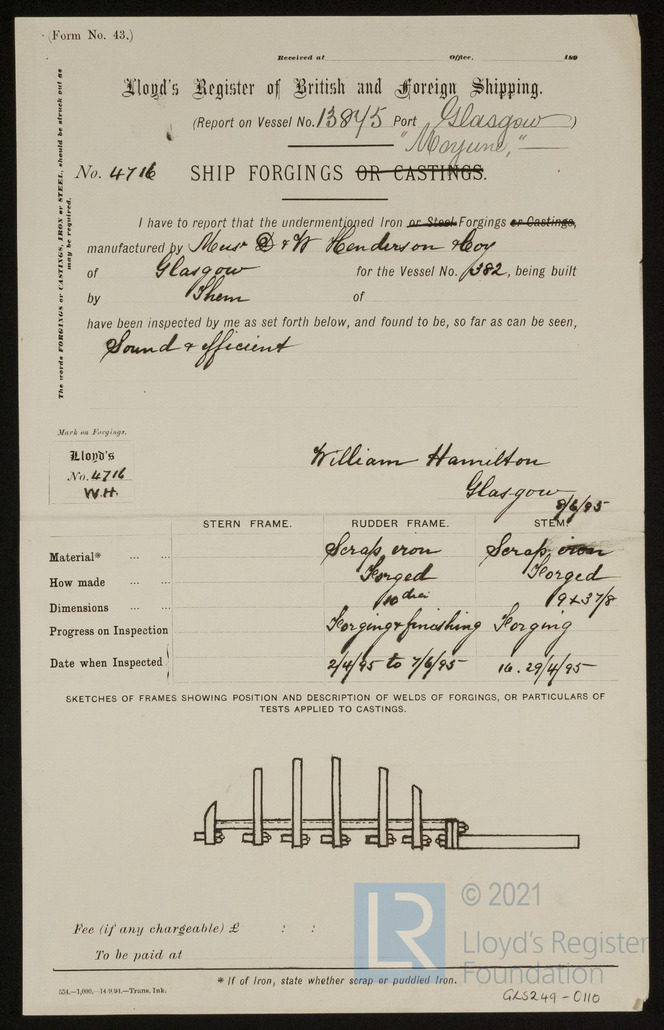 (Form No. 43.)
Received at Office, 189
Lloyd's Register of British and Foreign Shipping.
(Report on Vessel No. 13845 Port Glasgow)
"Moyune,"
No. 4716 SHIP FORGINGS OR CASTINGS.
The words FORGINGS or CASTINGS, IRON or STEEL, should be struck out as
may be required.
I have to report that the undermentioned Iron or Steel Forgings or Castings,
manufactured by Messrs D & W Henderson & Coy
of Glasgow for the Vessel No. 382, being built
by Them of
have been inspected by me as set forth below, and found to be, so far as can be seen,
Sound & efficient
Mark on Forgings.
Lloyd's
No. 4716
W.H.
William Hamilton
Glasgow
8/6/95
STERN FRAME. RUDDER FRAME. STEM.
Material* ... ... Scrap iron Scrap iron
How made ... ... Forged Forged
Dimensions ... ... 10 dia 9 x 3 7/8
Progress on Inspection Forging & finishing Forging
Date when Inspected 2/4/95 to 7/6/95 16. 29/4/95
SKETCHES OF FRAMES SHOWING POSITION AND DESCRIPTION OF WELDS OF FORGINGS, OR PARTICULARS OF
TESTS APPLIED TO CASTINGS.
Fee (if any chargeable) £ : :
To be paid at
* If of Iron, state whether scrap or puddled iron.
554.—1,000.—14/9/94.—Trans. Ink.
GLS249-0110
LR
© 2021
Lloyd's Register
Foundation